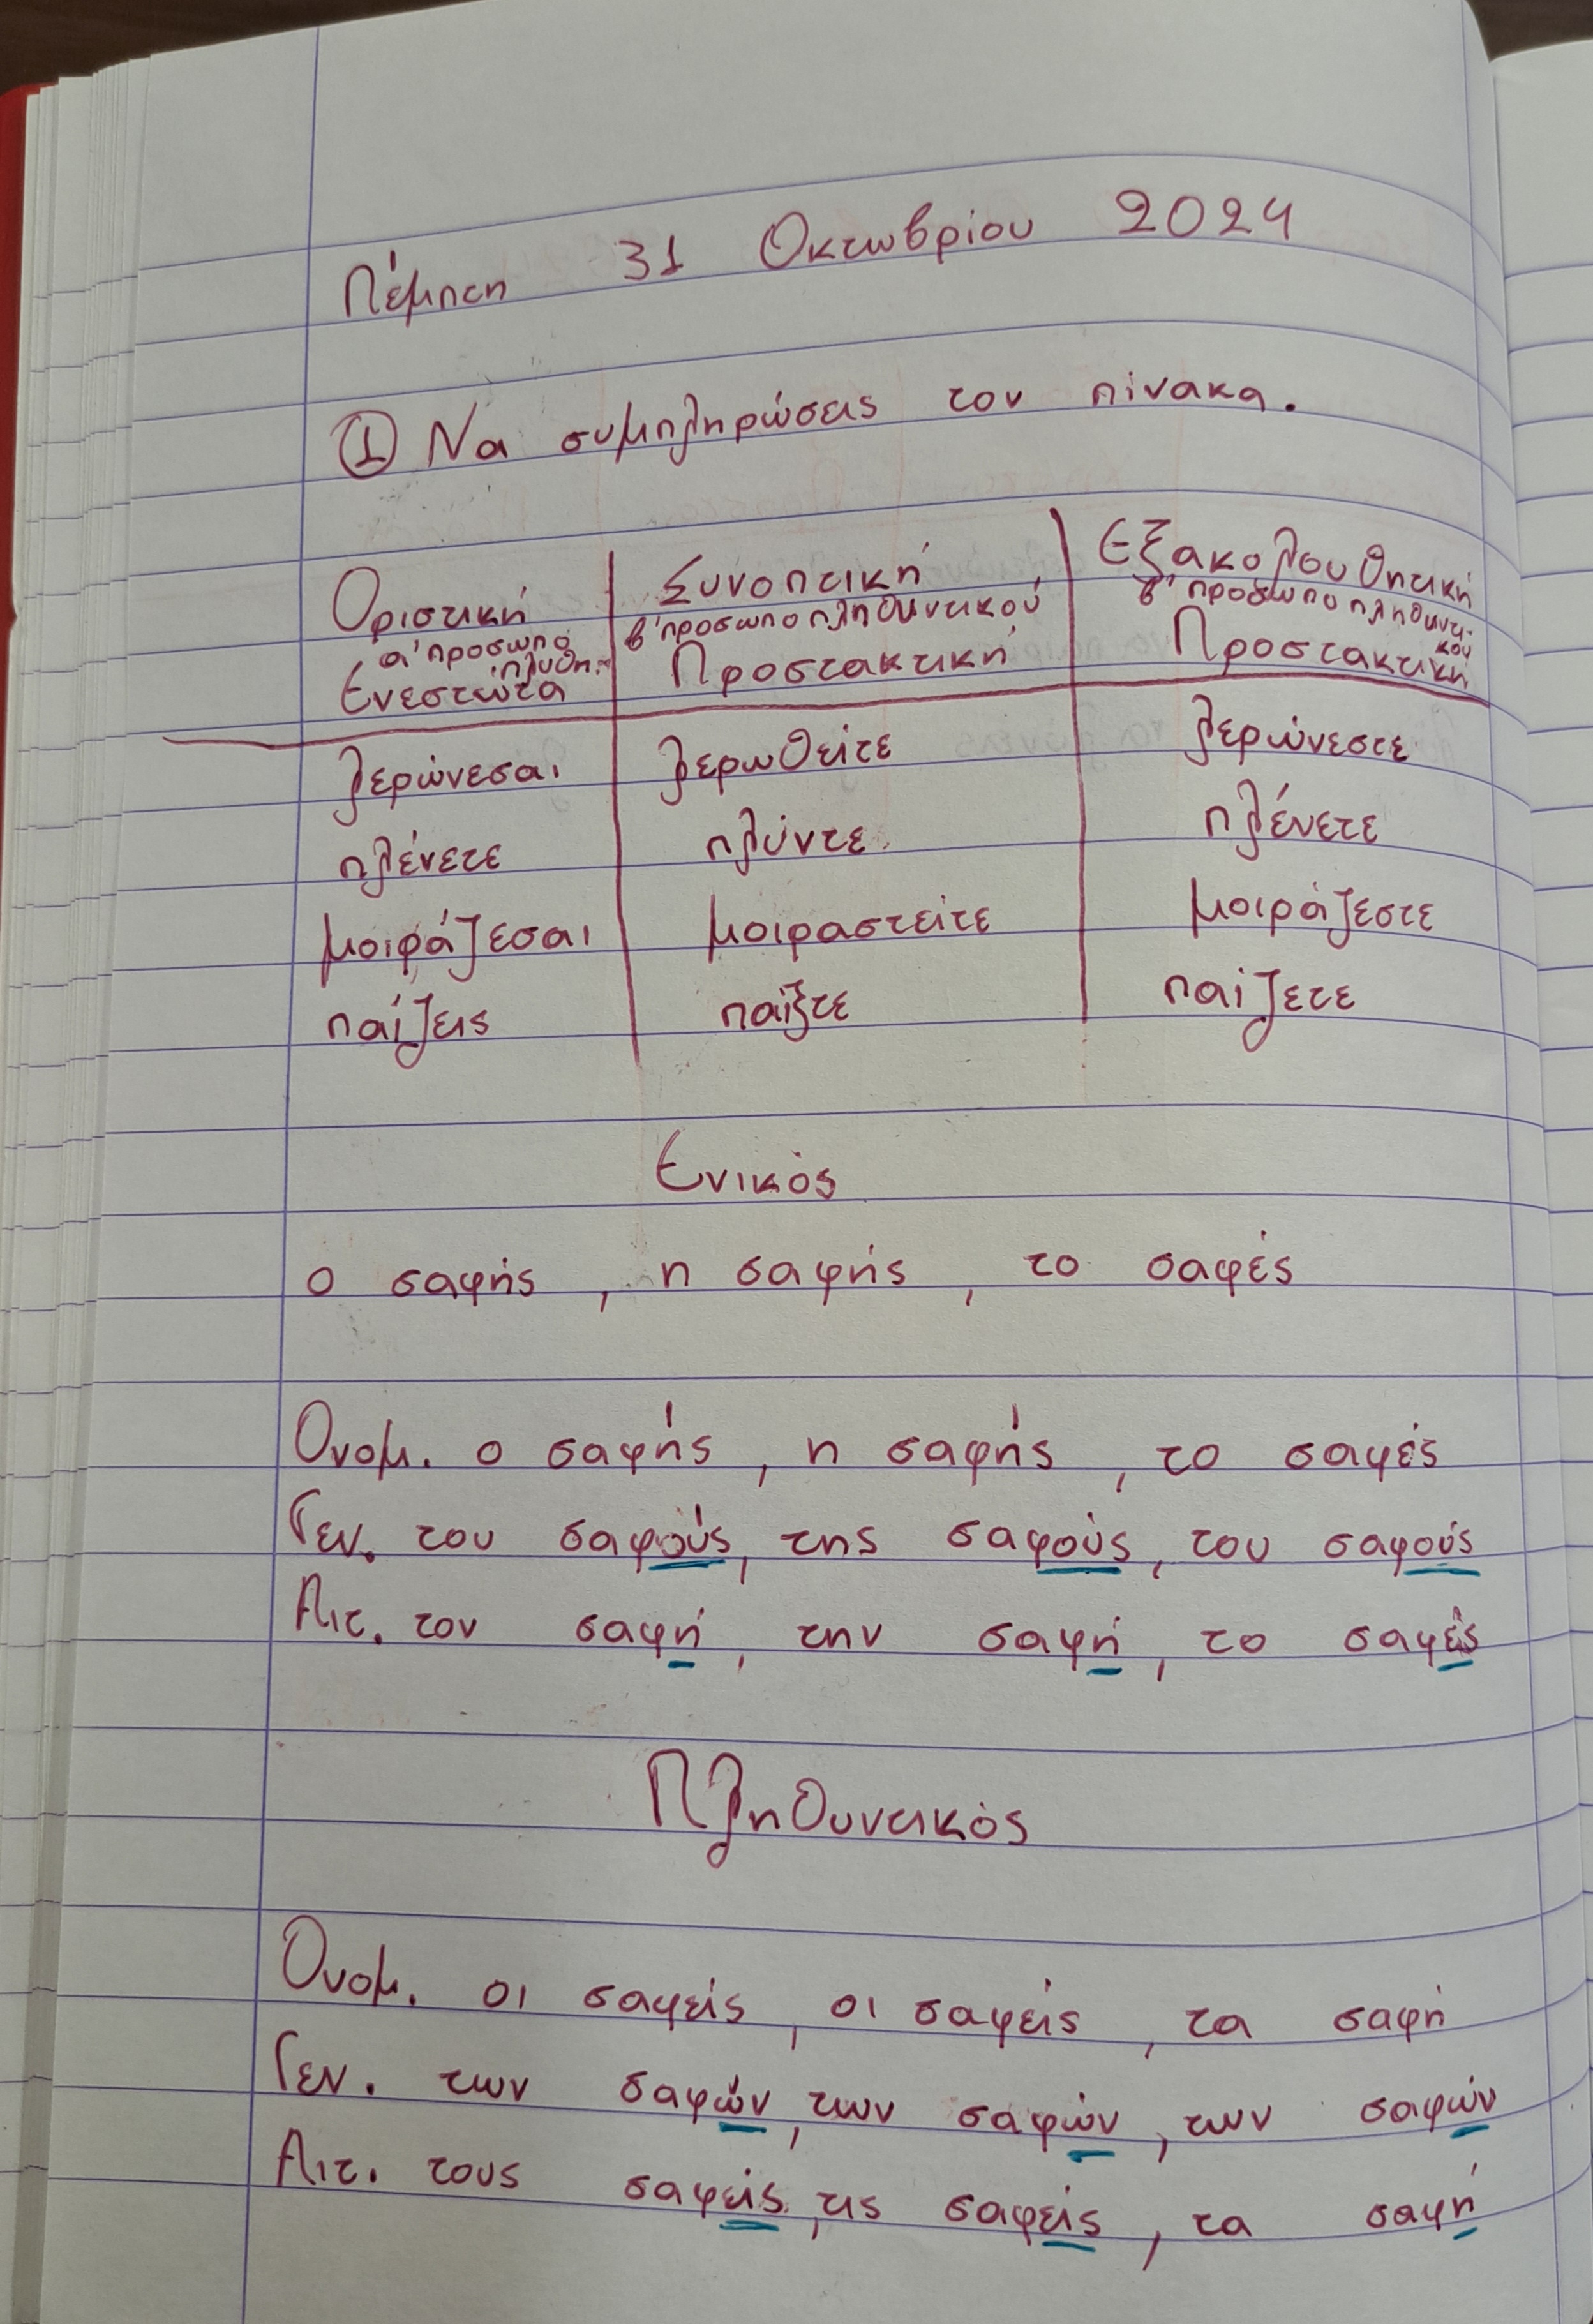 Πέμπτη 31 Οκτωβρίου 2024
① Να συμπληρώσεις τον πίνακα.
Οριστική Συνοπτική Εξακολουθητική
α' προσωπο πλυθη. β' προσωπο πληθυντικού β' προσωπο πληθυντικου
Ενεστώτα Προστακτική Προστακτική
λερώνεσαι λερωθείτε λερώνεστε
πλένετε πλύντε πλένετε
μοιράζεσαι μοιραστείτε μοιράζεστε
παίζεις παίξτε παίζετε
Ενικός
ο σαφής, η σαφής, το σαφές
Ονομ. ο σαφής, η σαφής, το σαφές
Γεν. του σαφούς, της σαφούς, του σαφούς
Αιτ. τον σαφή, την σαφή, το σαφές
Πληθυντικός
Ονομ. οι σαφείς, οι σαφείς, τα σαφή
Γεν. των σαφών, των σαφών, των σαφών
Αιτ. τους σαφείς, τις σαφείς, τα σαφή